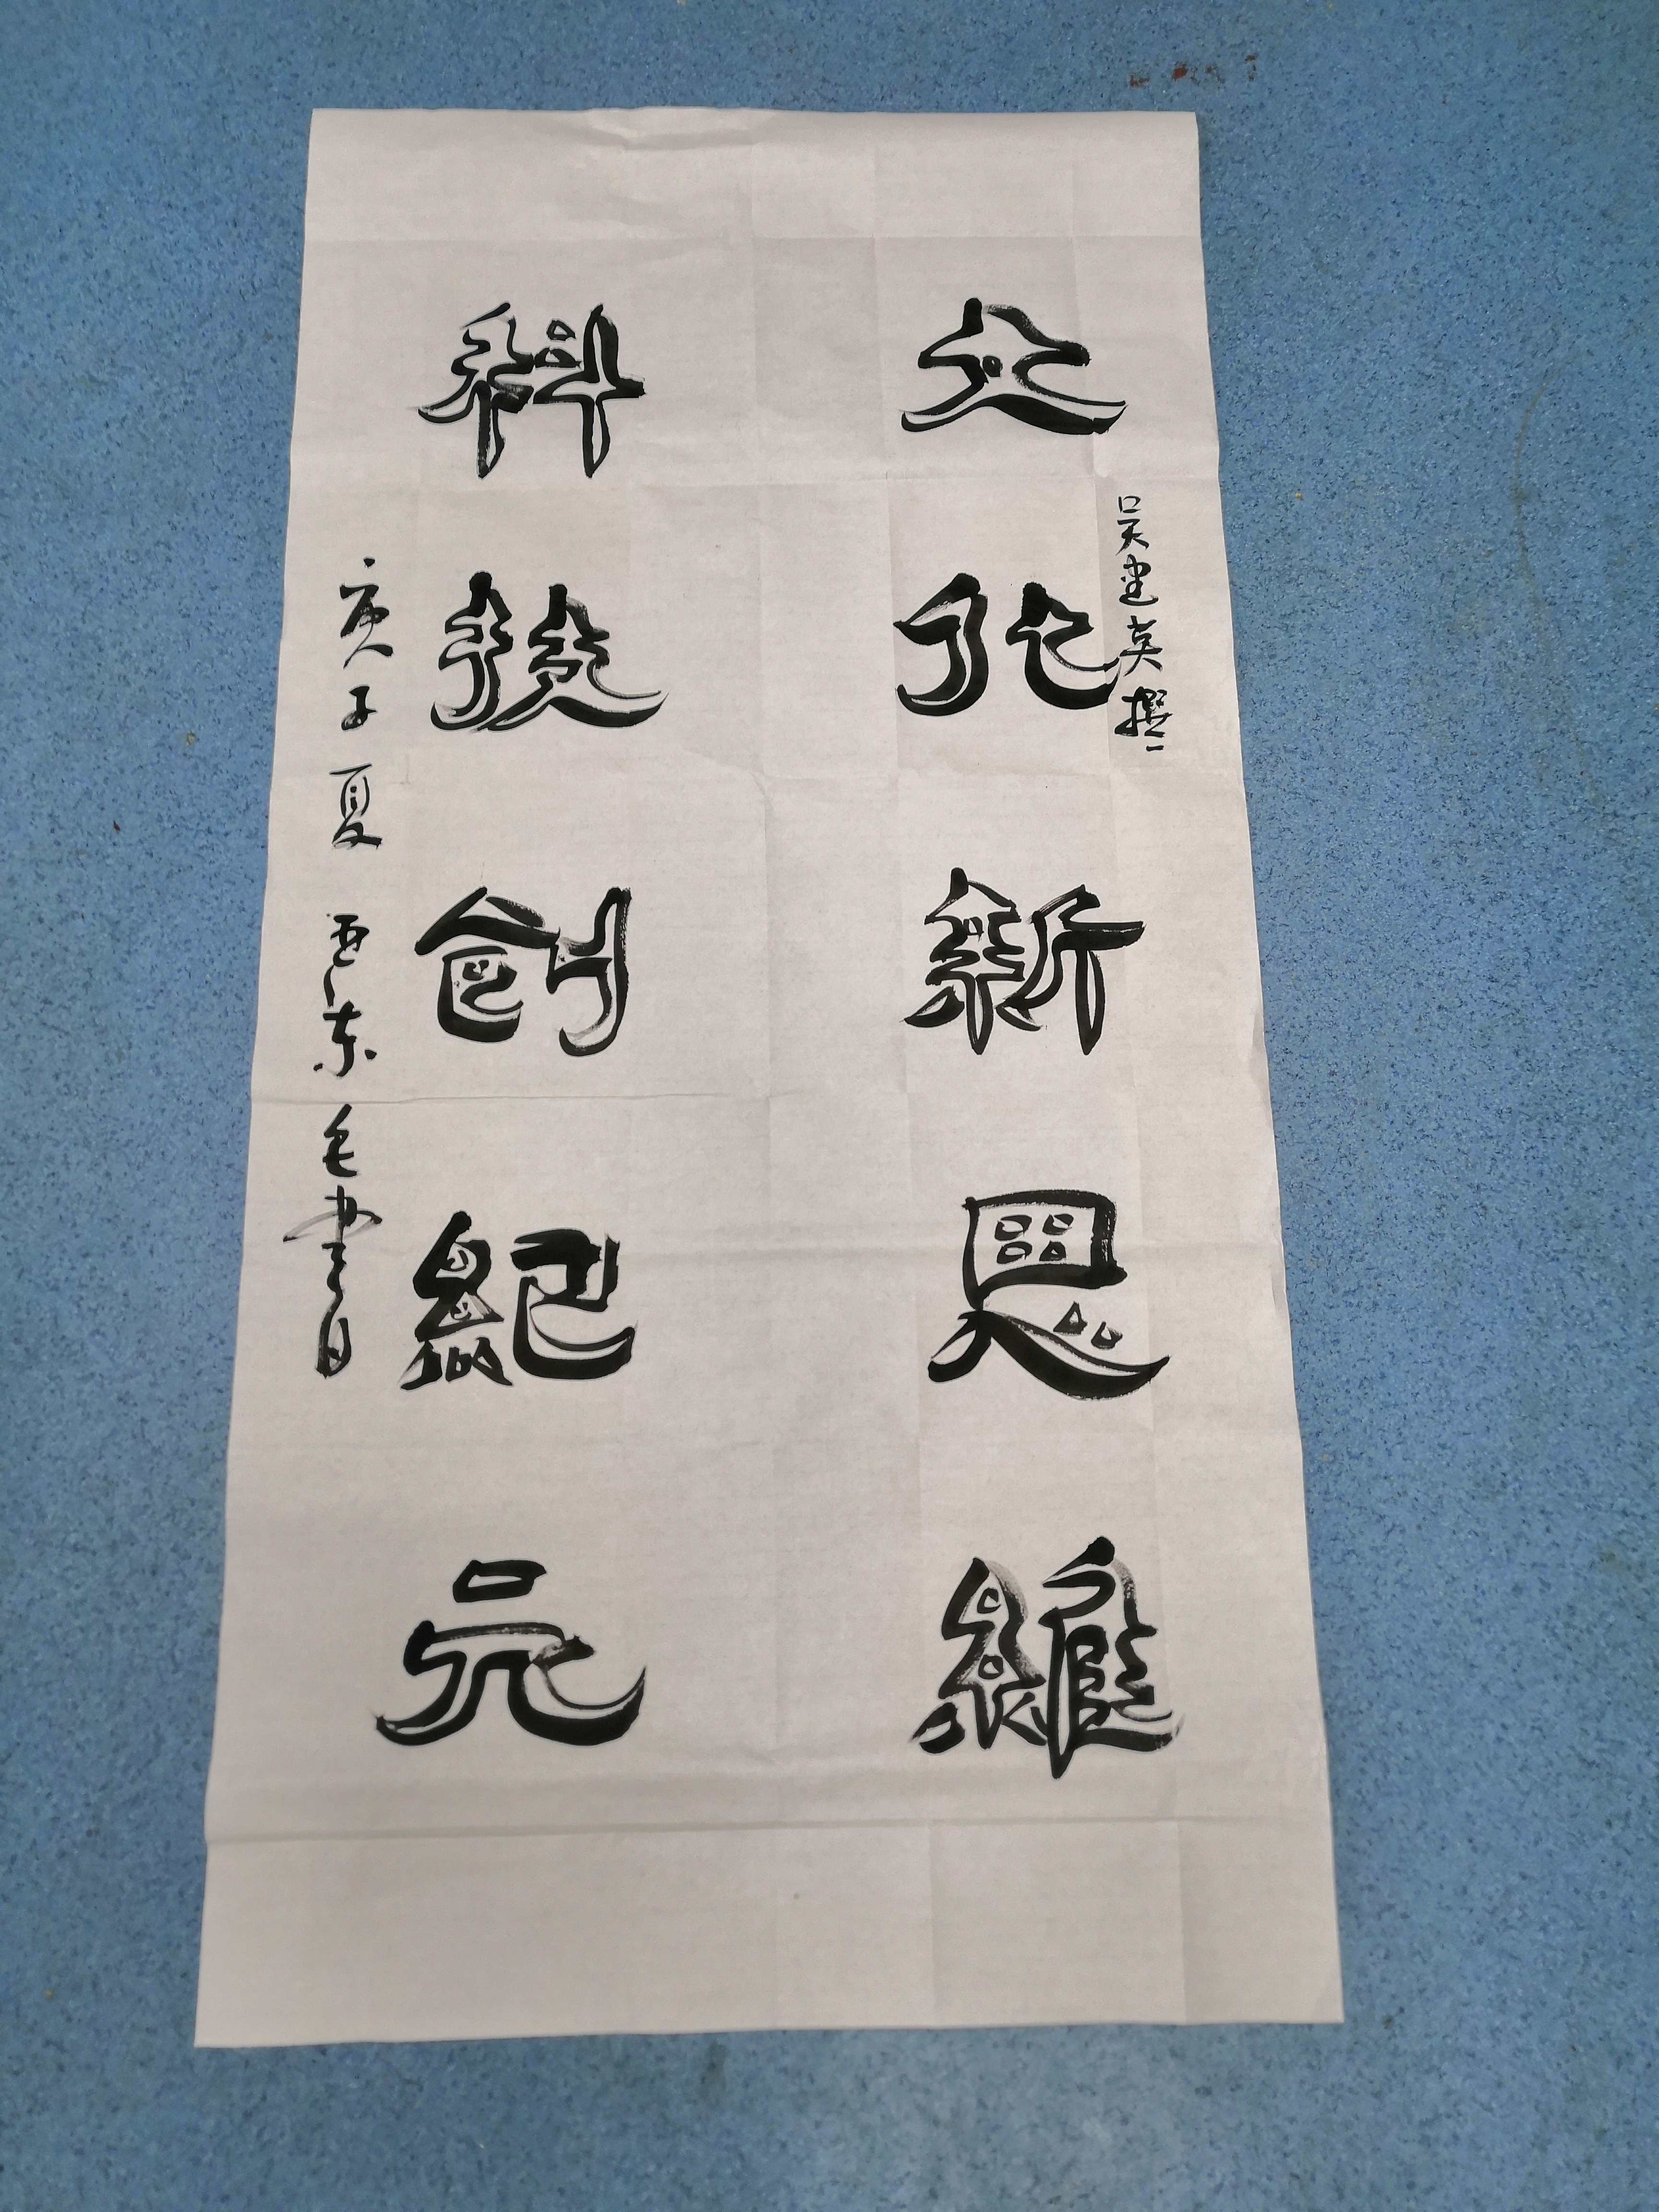 文化新思維
吴建英撰
科技創紀元
庚子夏 西东毛書